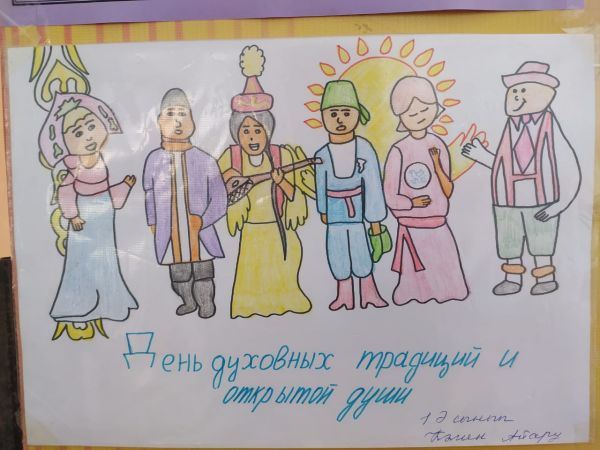 День духовных традиций и
открытой души
1 Ә сынып